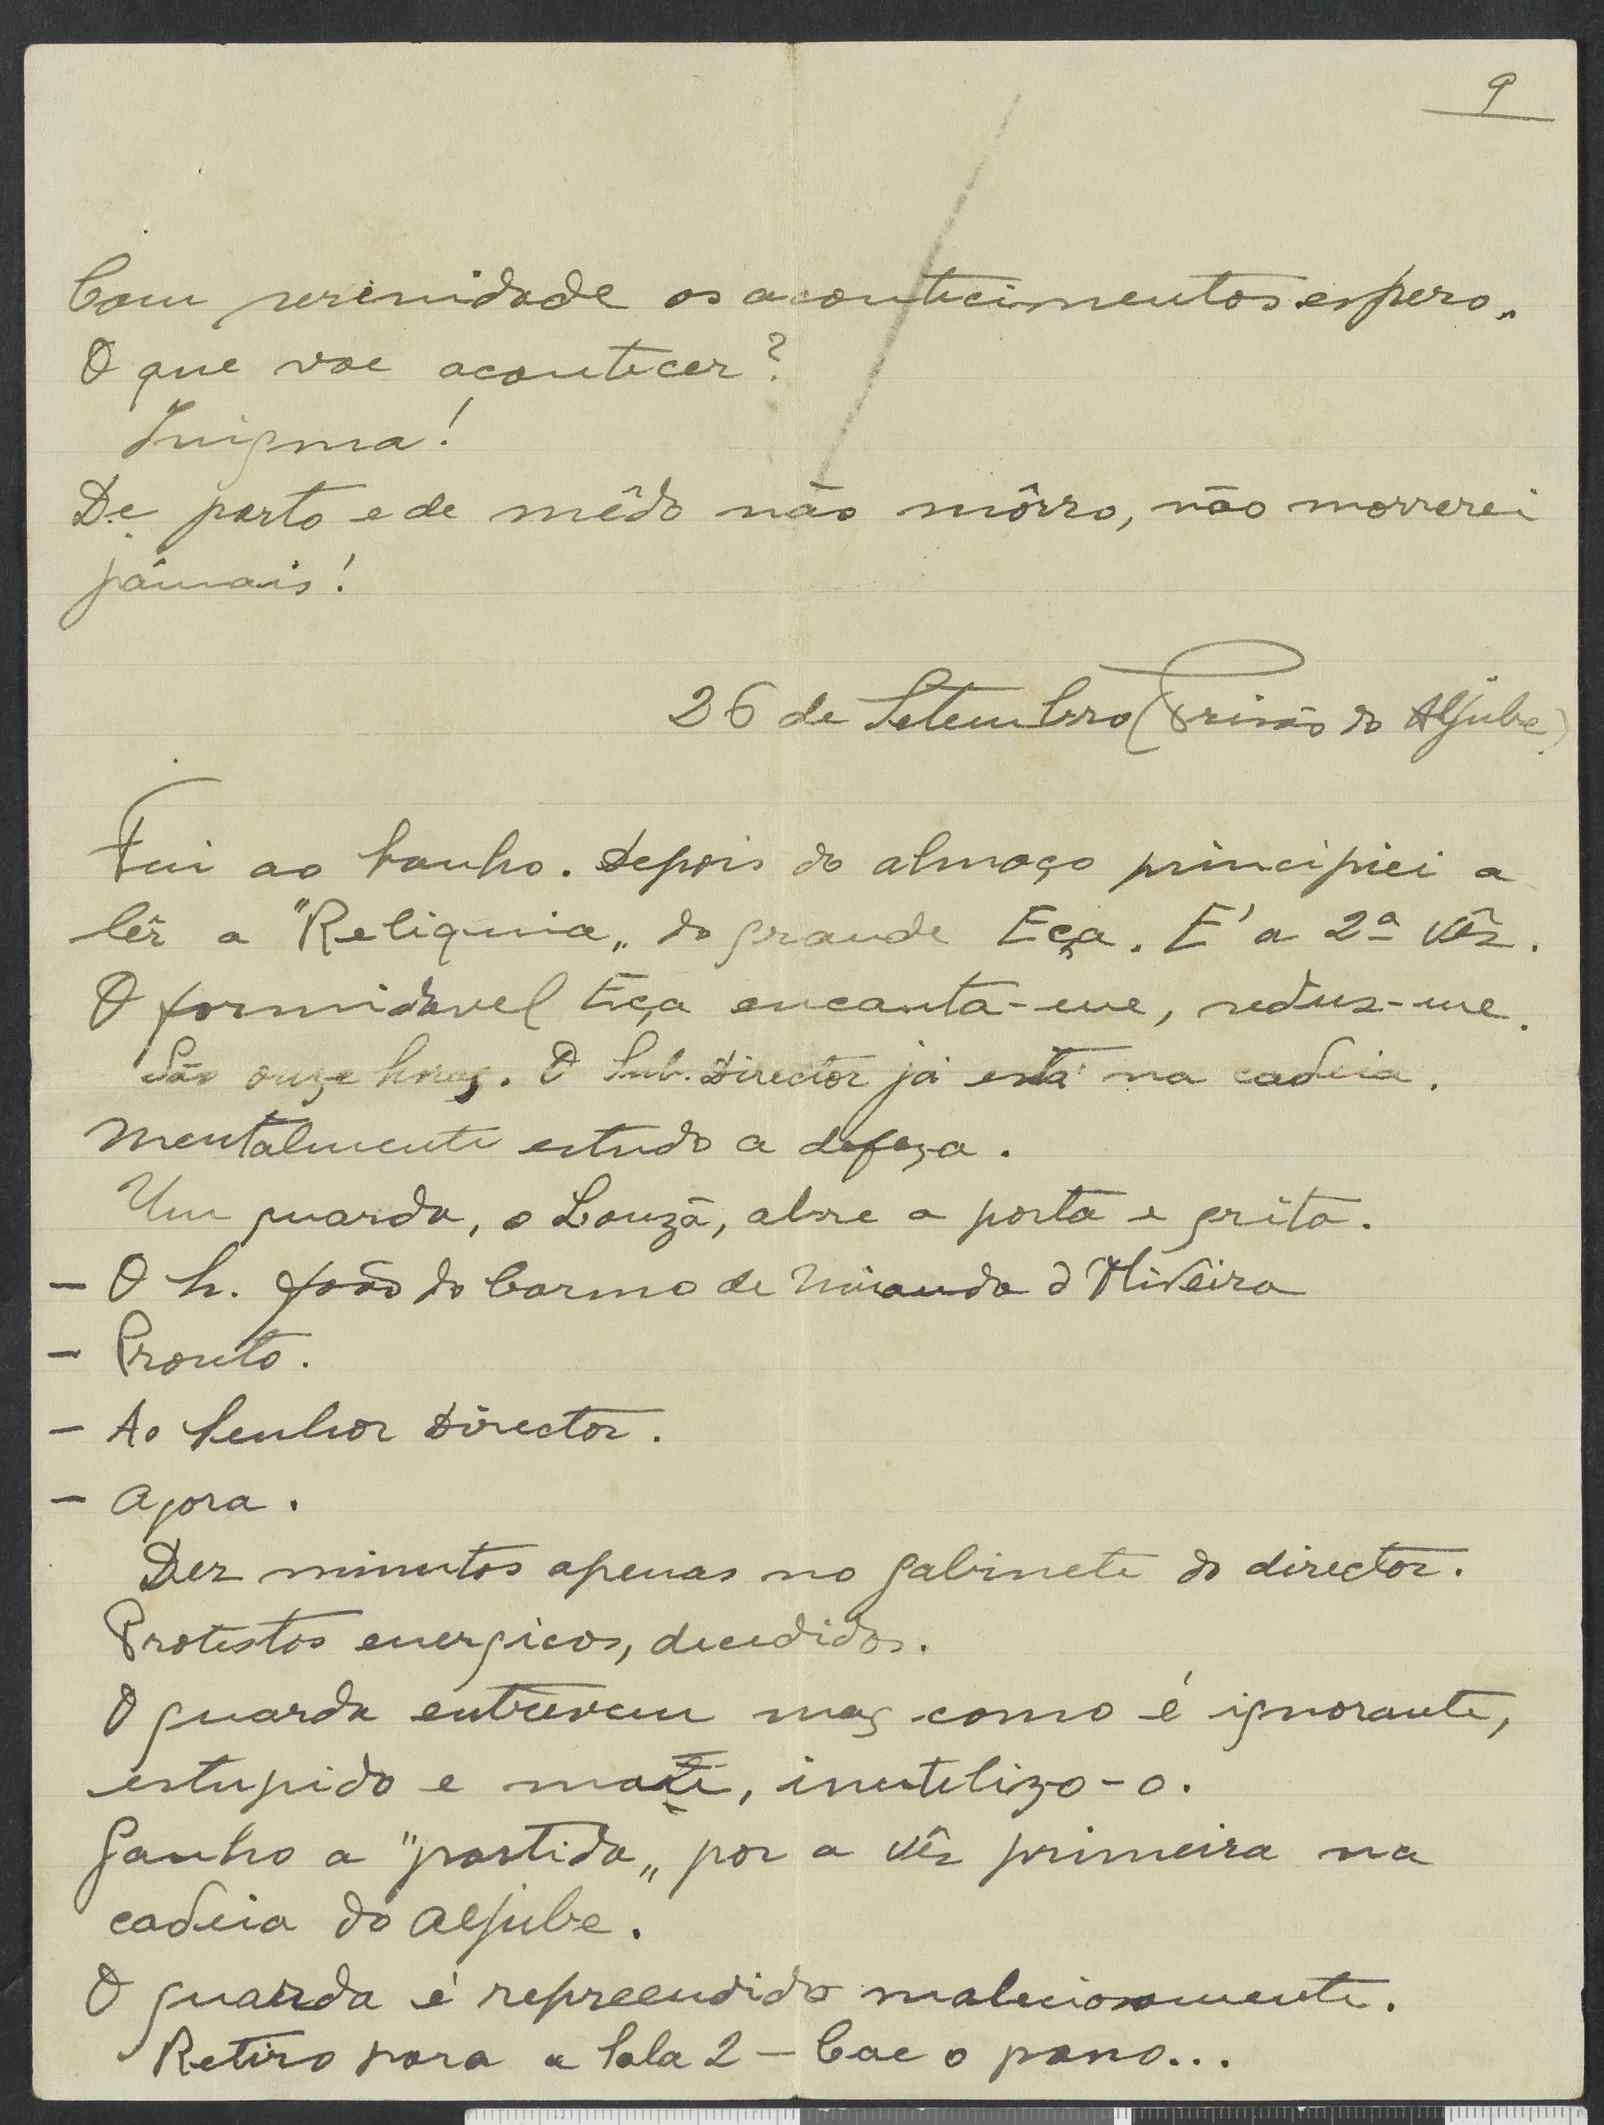 9
Com serinidade os aconticimentos espero„
O que vae acontecer?
Inigma!
De parto e de mêdo não môrro, não morrerei
jámais!
26 de Setembro (Prisão do Aljube)
Fui ao banho. Depois do almoço principiei a
lêr a "Reliquia„ do grande Eça. E' a 2ª vês.
O formidavel Eça encanta-me, sedus-me.
São onze horas. O Sub. Director já está na cadeia.
Mentalmente estudo a defeza.
Um guarda, o Louzã, abre a porta e grita.
- O Sr. João do Carmo de Miranda d'Oliveira
- Pronto.
- Ao Senhor Director.
- Agora.
Dez minutos apenas no gabinete do director.
Protestos energicos, decedidos.
O guarda entrevem mas como é ignorante,
estupido e, inutelizo-o.
Ganho a "partida„ por a vês primeira na
cadeia do Aljube.
O guarda é repreendido maleciosamente.
Retiro para a Sala 2 - Cae o pano...